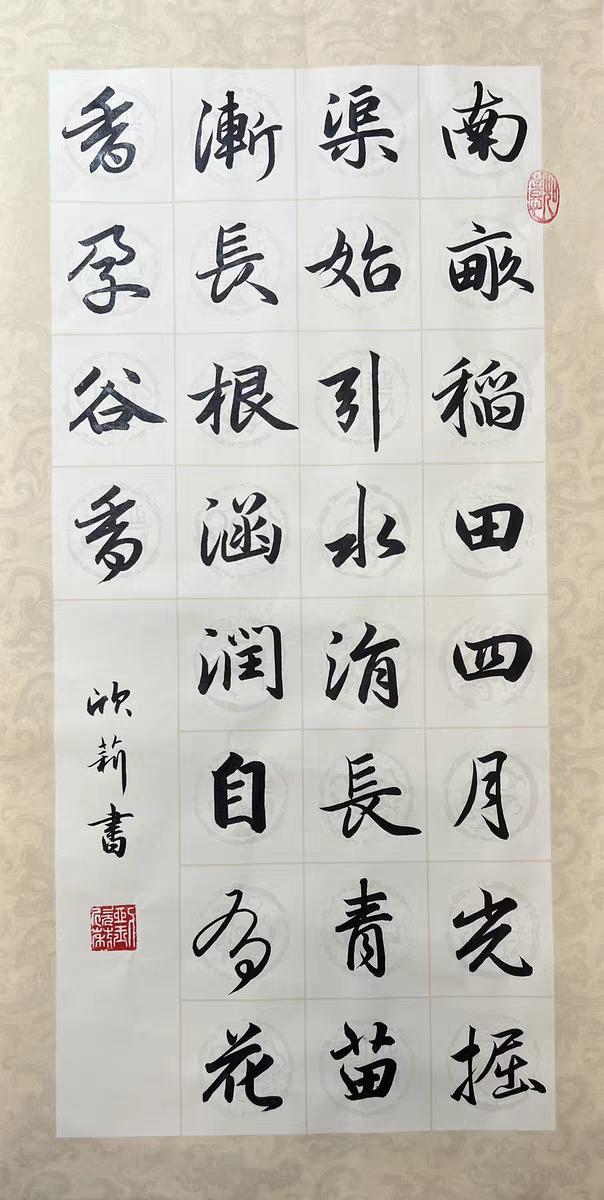 南畝稻田四月光掘
渠始引水涓長青苗
漸長根涵潤自為花
香孕谷香
欣莉書